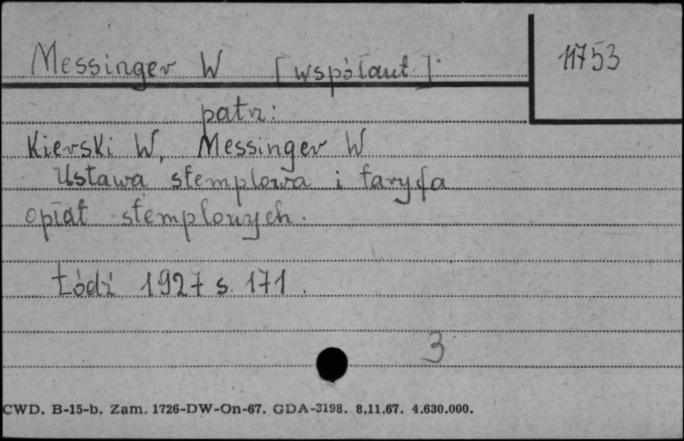 Messinger W [współaut].
11753
patrz:
Kierski W, Messinger W
Ustawa stemplowa i taryfa
opłat stemplowych.
Łódź 1927 s. 171.
3
CWD. B-15-b. Zam. 1726-DW-On-67. GDA-3198. 8.11.67. 4.630.000.